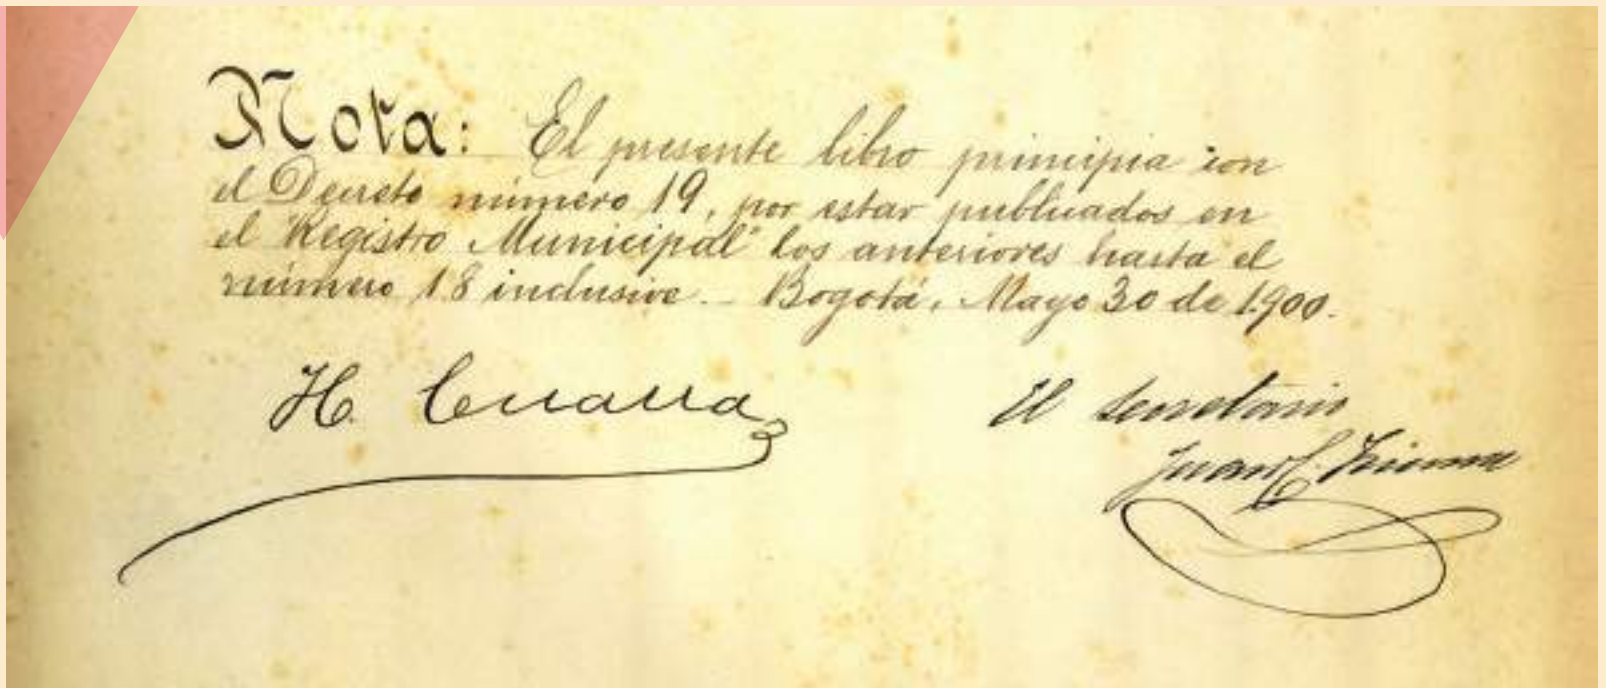 Nota: El presente libro principia con
el Decreto número 19, por estar publicados en
el "Registro Municipal" los anteriores hasta el
número 18 inclusive. Bogotá, Mayo 30 de 1.900.
H.
El Secretario
Juan C.